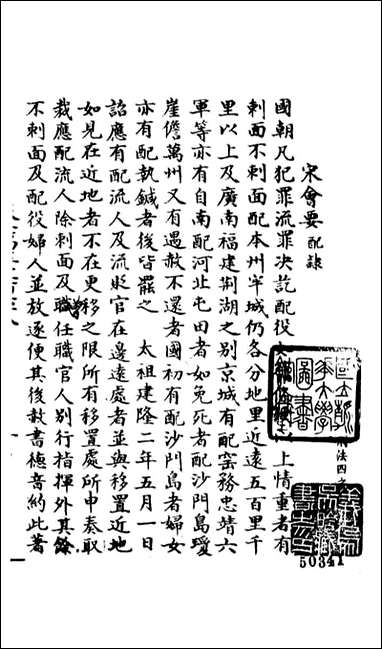 宋會要 配隸
國朝凡犯罪流罪決訖配役 上情重者有
刺面不刺面配本州牢城仍各分地里近遠五百里千
里以上及廣南福建荆湖之别京城有配窑務忠靖六
軍等亦有自南配河北屯田者如免死者配沙門島瓊
崖儋萬州又有遇赦不還者國初有配沙門島者婦女
亦有配執鍼者後皆罷之 太祖建隆二年五月一日
詔應有配流人及流貶官在邊遠處者並與移置近地
如見在近地者不在更移之限所有移置處所申奏取
裁應配流人除刺面及職任職官人别行指揮外其餘
不刺面及配役婦人並放逐便其後赦書德音約此著
刑法四之
50341